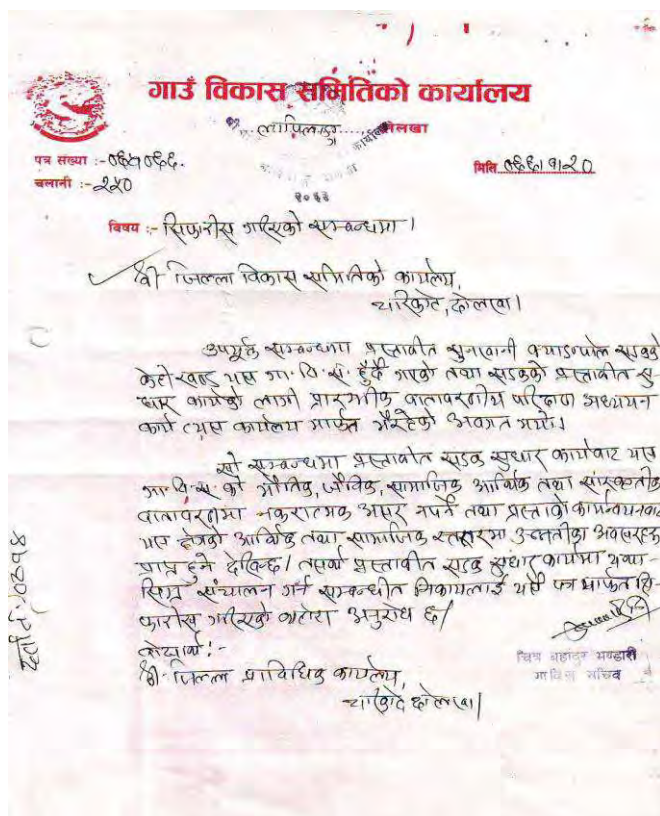 गाउँ विकास समितिको कार्यालय
लापिलाङ्ग, दोलखा
कार्यालय
२०५३
पत्र संख्या :- ०६५।०६६.
मिति ०६६।१।२०
चलानी :- २५०
विषय :- सिफारीस गरिएको सम्बन्धमा ।
श्री जिल्ला विकास समितिको कार्यलय,
चरिकोट, दोलखा ।
उपर्युक्त सम्बन्धमा प्रस्तावीत सडकको
केही खण्ड यस गा. वि. स. हुँदै गएको तथा सडकको प्रस्तावीत सु-
धार कार्यको लागी प्रारम्भीक वातावरणीय परिक्षण अध्ययन
कार्य त्यस कार्यालय मार्फत भैरहेको अवगत भयो ।
सो सम्बन्धमा प्रस्तावीत सडक सुधार कार्यबाट यस
गा. वि. स. को भौतिक, जैविक, सामाजिक आर्थिक तथा सांस्कृतीक
वातावरणमा नकरात्मक असर नपर्ने तथा प्रस्तावको कार्यन्वयनबाट
यस क्षेत्रको आर्थिक तथा सामाजिक स्तरमा उन्नतीका अवसरहरु
प्राप्त हुने देखिन्छ । तसर्थ प्रस्तावीत सडक सुधार कार्यमा यथा-
सिघ्र संचालन गर्न सम्बन्धीत निकायलाई यसै पत्र मार्फत सि-
फारीस गरिएको व्यहोरा अनुरोध छ ।
बोधार्थ :-
श्री जिल्ला प्राविधिक कार्यलय,
चरिकोट दोलखा ।
चित्र बहादुर भण्डारी
गाविस सचिव